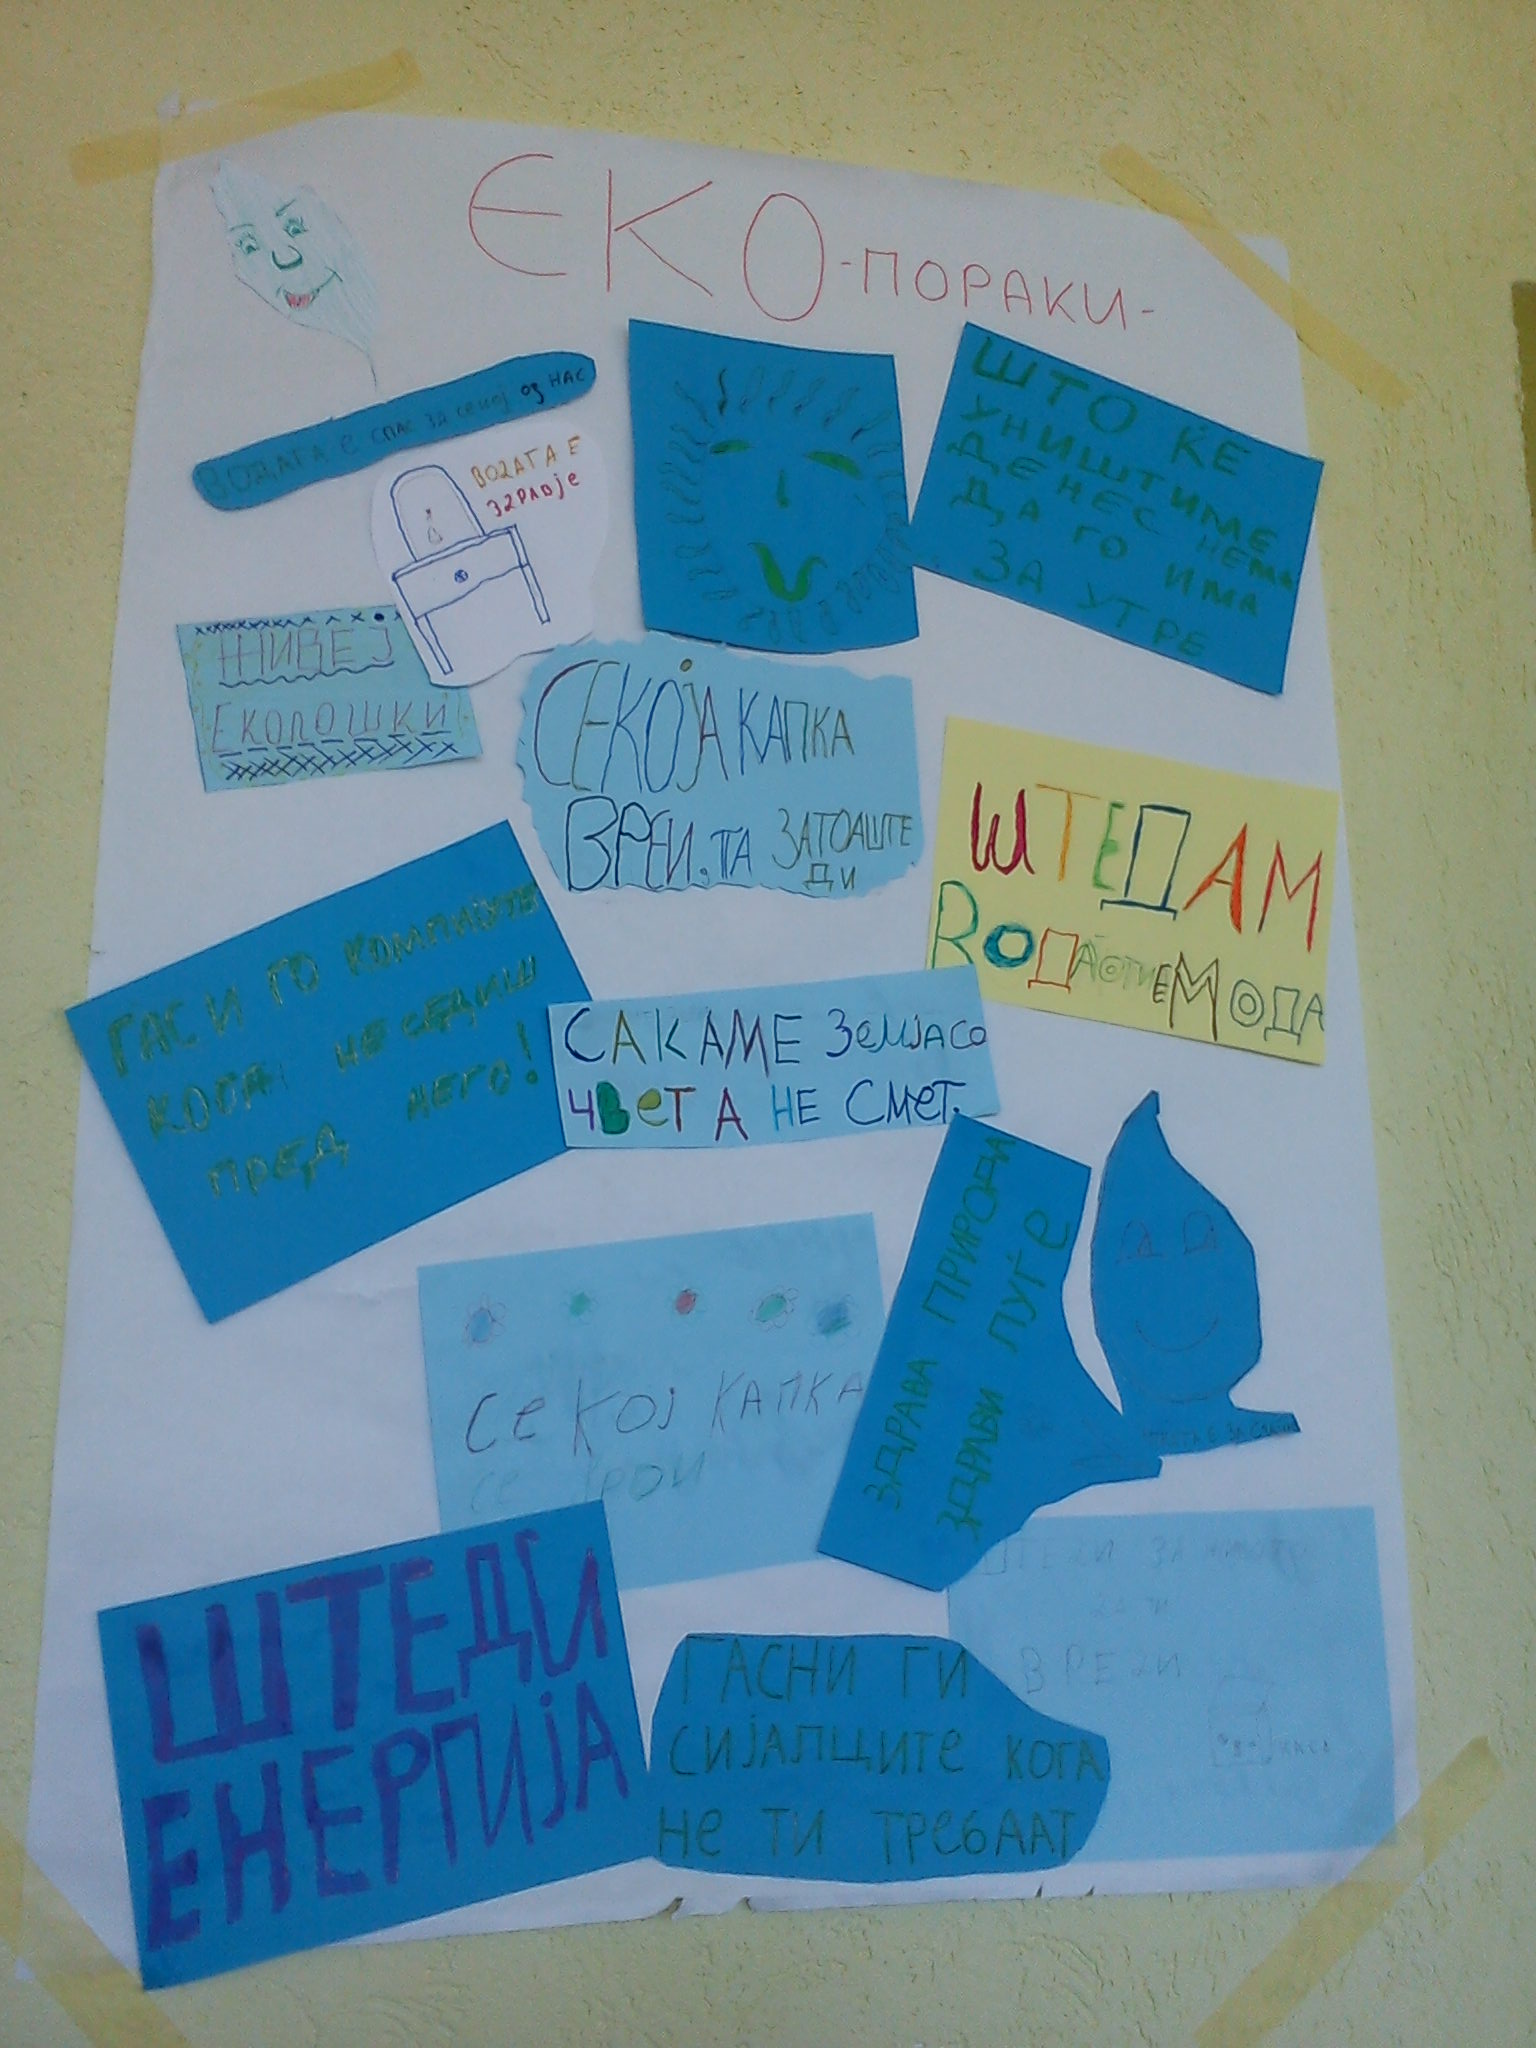 ЕКО-ПОРАКИ-
ВОДАТА Е СПАС ЗА СЕКОЈ ОД НАС
ВОДАТА Е
ЗДРАВЈЕ
ШТО ЌЕ
УНИШТИМЕ
ДЕНЕС НЕМА
ДА ГО ИМА
ЗА УТРЕ
ЖИВЕЈ
ЕКОЛОШКИ
СЕКОЈА КАПКА
ВРЕИ, ПА ЗАТОА ШТЕ
ДИ
ШТЕДАМ
ВОДА ОТИ Е МОДА
ГАСИ ГО КОМПЈУТЕР
КОГА НЕ СЕДИШ
ПРЕД НЕГО!
САКАМЕ ЗЕМЈА СО
ЧВЕТ А НЕ СМЕТ.
ЗДРАВА ПРИРОДА
ЗДРАВИ ЛУЃЕ
СЕКОЈ КАПКА
СЕ БРОИ
ШТЕДИ
ЕНЕРГИЈА
ГАСНИ ГИ
СИЈАЛЦИТЕ КОГА
НЕ ТИ ТРЕБААТ
ШТЕДИ ЗА
ВРЕДИ
КАСА